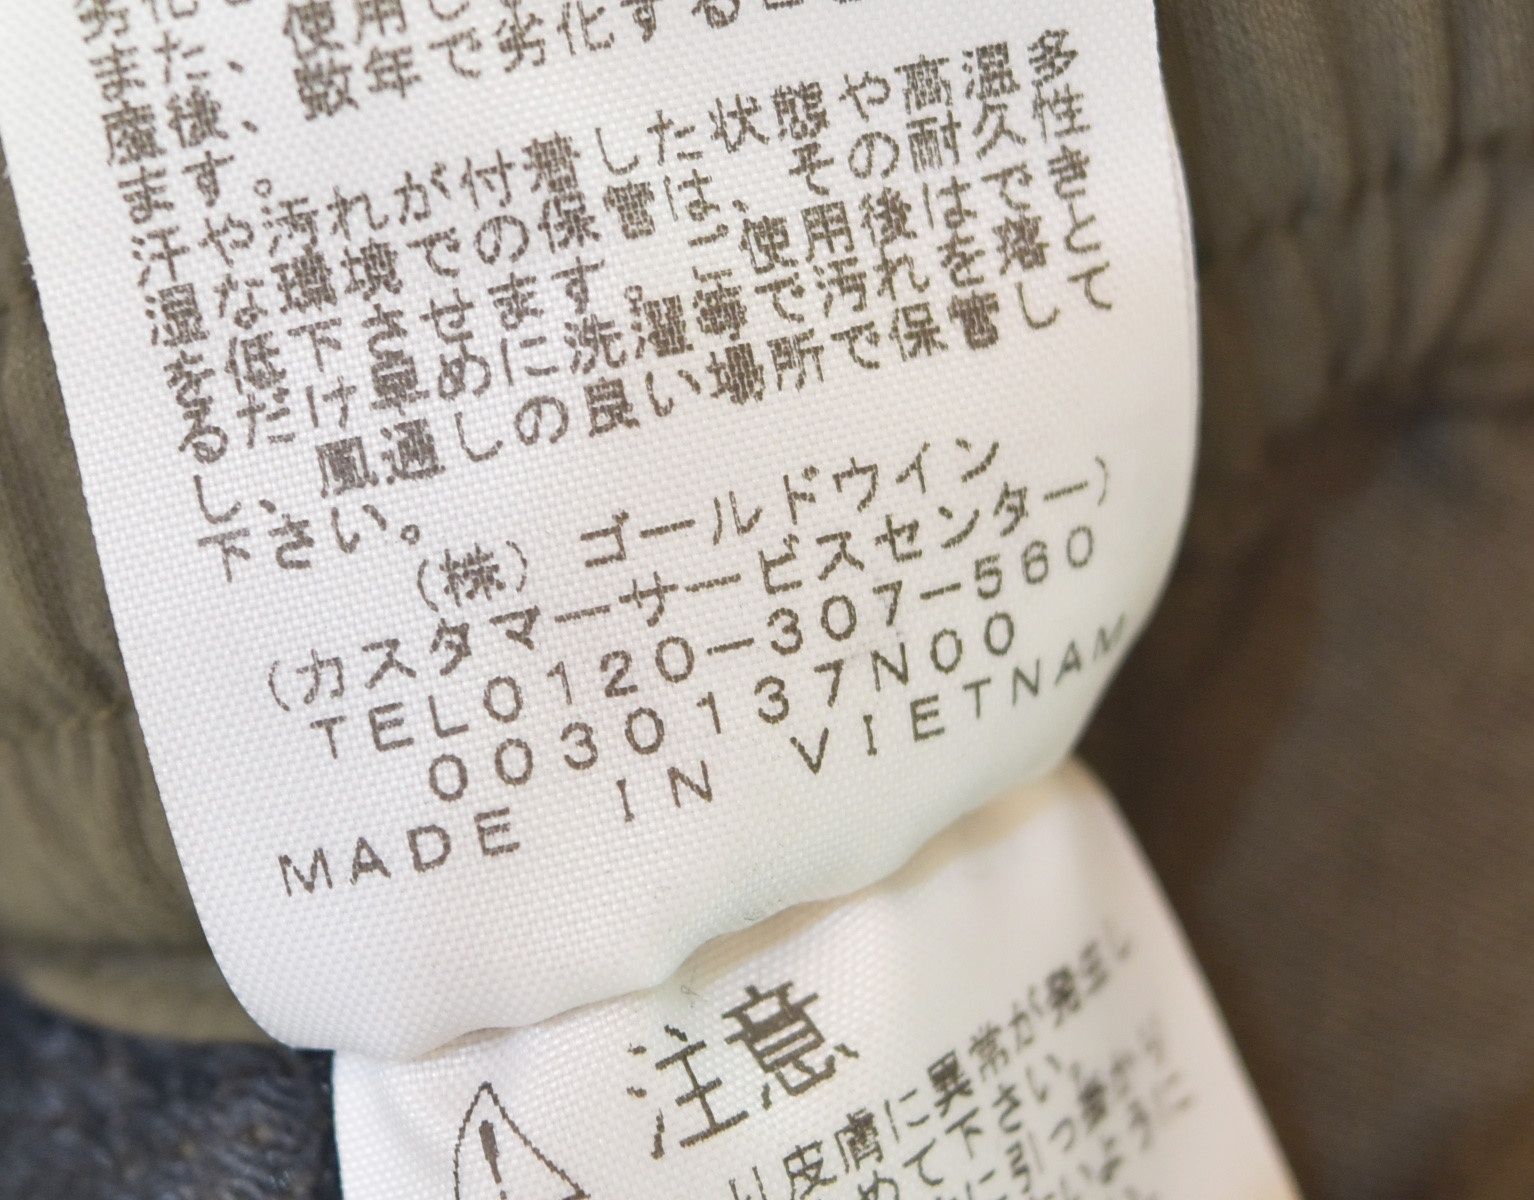 た、使用し
後、数年で劣化すること
ます。
汗や汚れが付着した状態や高温多
湿な環境での保管は、その耐久性
を低下させます。ご使用後はでき
るだけ早めに洗濯等で汚れを落と
し、風通しの良い場所で保管して
下さい。
(株) ゴールドウイン
(カスタマーサービスセンター)
TEL0120-307-560
0030137N00
MADE IN VIETNAM
注意
皮膚に異常が発生し
めて下さい。
に引っ掛かり
いように